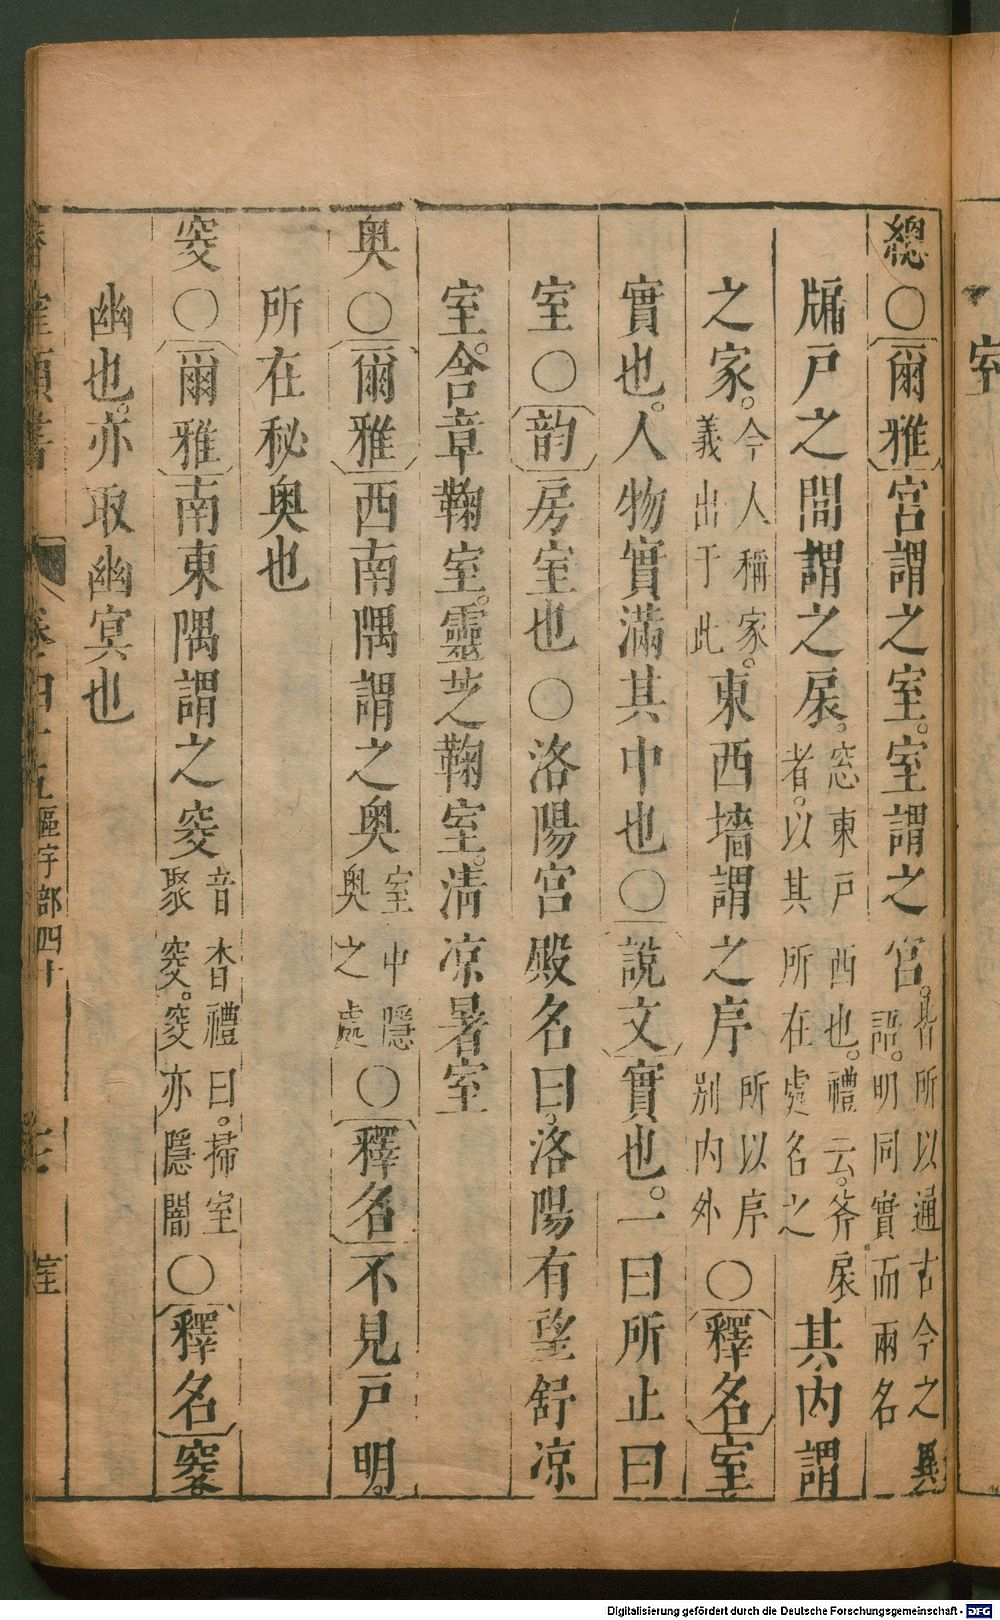 室
總○爾雅宮謂之室。室謂之宮。皆所以通古今之異語。明同實而兩名
牖戸之間謂之扆。窓東戸西也。禮云。斧扆者。以其所在處名之其内謂
之家。今人稱家。義出于此東西墻謂之序所以序別内外○釋名室
實也。人物實滿其中也○說文實也。一曰所止曰
室○韵房室也○洛陽宮殿名曰。洛陽有望舒凉
室。含章鞠室。靈芝鞠室。清凉暑室
奥○爾雅西南隅謂之奥室中隱奥之處○釋名不見戸明。
所在秘奥也
窔○爾雅南東隅謂之窔音杳禮曰。掃室聚窔。窔亦隱闇○釋名窔
幽也。亦取幽冥也
卷四十五區宇部四十 室
Digitalisierung gefördert durch die Deutsche Forschungsgemeinschaft - DFG